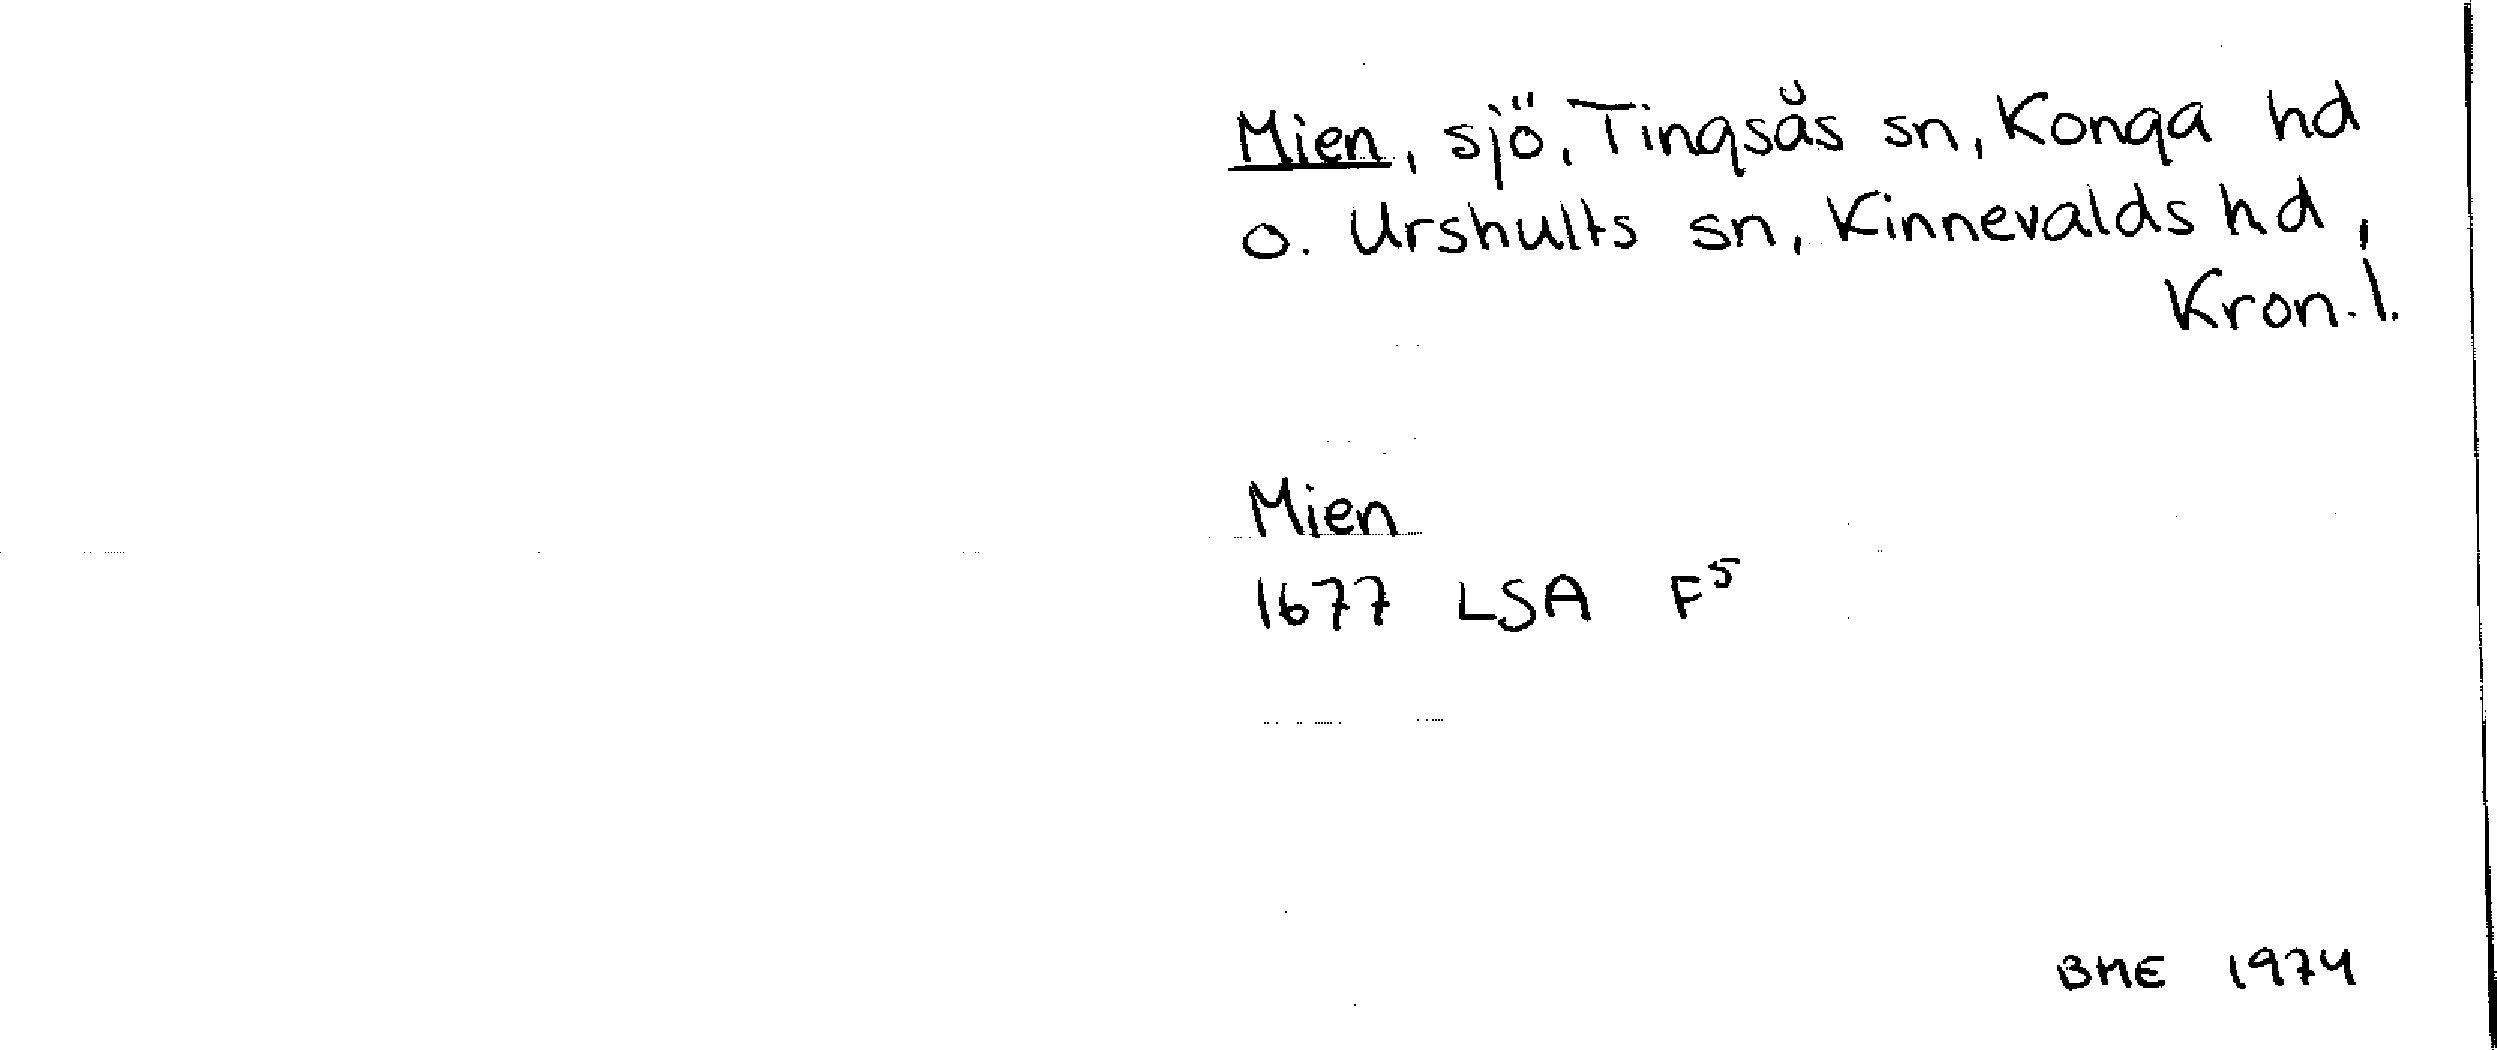 Mien, sjö, Tingsås sn, Konga hd
o. Urshults sn, Kinnevalds hd,
Kron. l.
Mien
1677 LSA F⁵
BME 1974